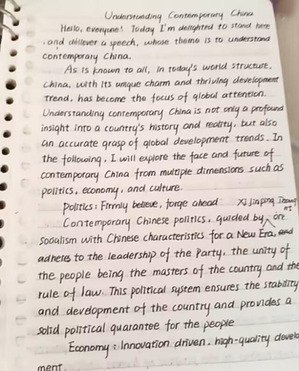 Understanding Contemporary China
Hello, everyone! Today I'm delighted to stand here
and deliver a speech, whose theme is to understand
contemporary China.
As is known to all, in today's world structure,
China, with its unique charm and thriving development
trend, has become the focus of global attention.
Understanding contemporary China is not only a profound
insight into a country's history and reality, but also
an accurate grasp of global development trends. In
the following, I will explore the face and future of
contemporary China from multiple dimensions such as
politics, economy, and culture.
Politics: Firmly believe, forge ahead Xi Jinping Thought
Contemporary Chinese politics, guided by on
Socialism with Chinese characteristics for a New Era, and
adheres to the leadership of the Party, the unity of
the people being the masters of the country and the
rule of law. This political system ensures the stability
and development of the country and provides a
solid political guarantee for the people
Economy: Innovation driven, high-quality develop
ment.